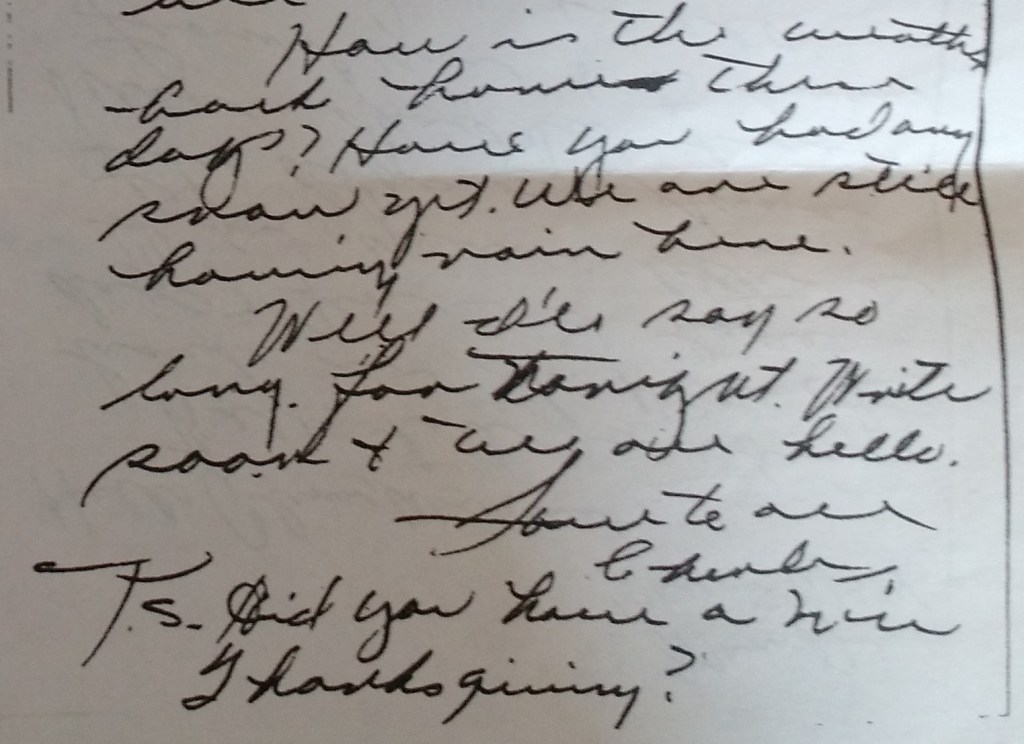 all
How is the weather
back home these
days? Have you had any
snow yet. We are still
having rain here.
Well I'll say so
long for tonight. Write
soon & tell all hello.
Love to all
Charles,
P.S. Did you have a nice
Thanksgiving?